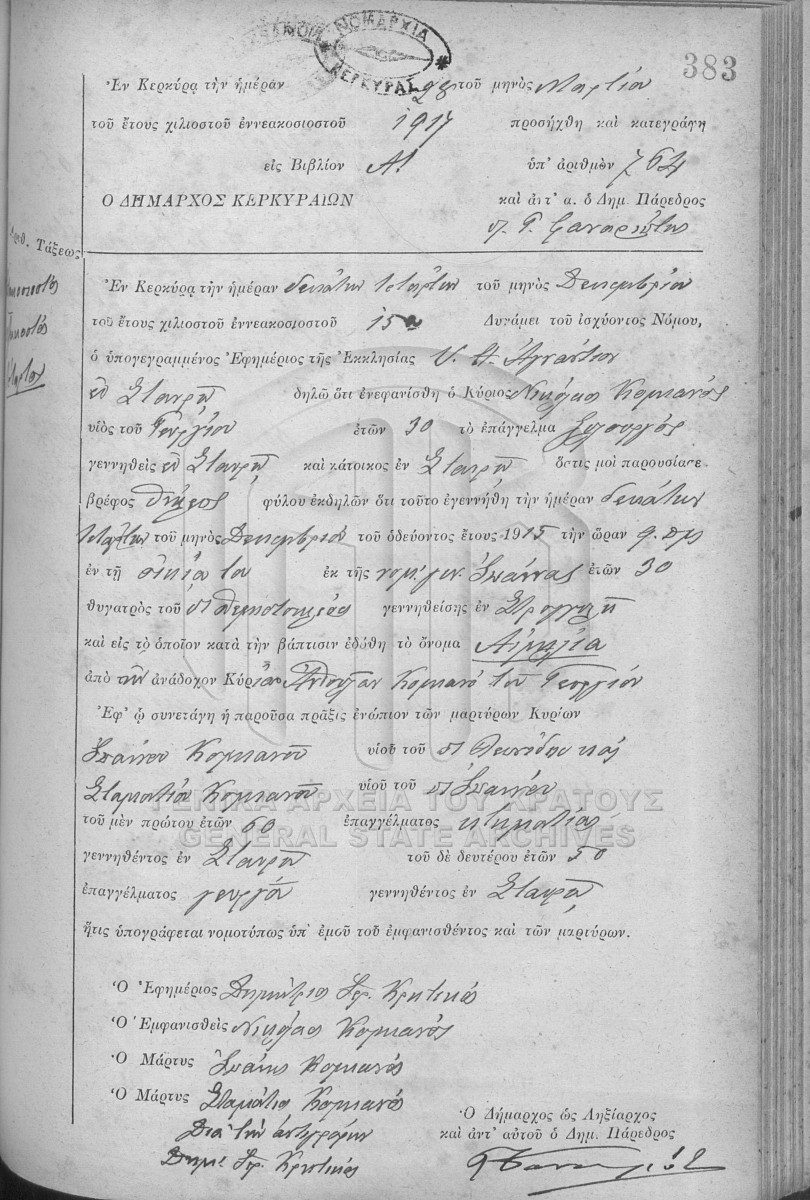 ΝΟΜΑΡΧΙΑ
ΚΕΡΚΥΡΑΣ
383
Ἐν Κερκύρᾳ τὴν ἡμέραν 28 τοῦ μηνὸς Μαρτίου
τοῦ ἔτους χιλιοστοῦ ἐννεακοσιοστοῦ 1917 προσήχθη καὶ κατεγράφη
εἰς Βιβλίον Α! ὑπ' ἀριθμὸν 764
Ο ΔΗΜΑΡΧΟΣ ΚΕΡΚΥΡΑΙΩΝ καὶ ἀντ' α. ὁ Δημ. Πάρεδρος
Τάξεως
Ἐν Κερκύρᾳ τὴν ἡμέραν δεκάτην τετάρτην τοῦ μηνὸς Δεκεμβρίου
τοῦ ἔτους χιλιοστοῦ ἐννεακοσιοστοῦ 15 Δυνάμει τοῦ ἰσχύοντος Νόμου,
ὁ ὑπογεγραμμένος Ἐφημέριος τῆς Ἐκκλησίας
ἐν Σταυρῷ δηλῶ ὅτι ἐνεφανίσθη ὁ Κύριος Νικόλαος Κομιανός
υἱὸς τοῦ Γεωργίου ἐτῶν 30 τὸ ἐπάγγελμα ξυλουργός
γεννηθεὶς ἐν Σταυρῷ καὶ κάτοικος ἐν Σταυρῷ ὅστις μοι παρουσίασε
βρέφος θήλεος φύλου ἐκδηλῶν ὅτι τοῦτο ἐγεννήθη τὴν ἡμέραν δεκάτην
τετάρτην τοῦ μηνὸς Δεκεμβρίου τοῦ ὁδεύοντος ἔτους 1915 τὴν ὥραν 9. πμ
ἐν τῇ οἰκίᾳ του ἐκ τῆς νομ. γυν. Ἰωάννας ἐτῶν 30
θυγατρὸς τοῦ π Θεμιστοκλέους γεννηθείσης ἐν Στρογγυλῇ
καὶ εἰς τὸ ὁποῖον κατὰ τὴν βάπτισιν ἐδόθη τὸ ὄνομα Αἰμιλία
ἀπὸ τὴν ἀνάδοχον Κυρίαν Κομιανό του Γεωργίου
Ἐφ' ᾧ συνετάγη ἡ παροῦσα πρᾶξις ἐνώπιον τῶν μαρτύρων Κυρίων
Ἰωάννου Κομιανοῦ υἱοῦ τοῦ π Λεωνίδου καὶ
Σταματίου Κομιανοῦ υἱοῦ τοῦ π Ἰωάννου
ΓΕΝΙΚΑ ΑΡΧΕΙΑ ΤΟΥ ΚΡΑΤΟΥΣ
τοῦ μὲν πρώτου ἐτῶν 60 ἐπαγγέλματος κτηματίας
GENERAL STATE ARCHIVES
γεννηθέντος ἐν Σταυρῷ τοῦ δὲ δευτέρου ἐτῶν 50
ἐπαγγέλματος γεωργοῦ γεννηθέντος ἐν Σταυρῷ
ἥτις ὑπογράφεται νομοτύπως ὑπ' ἐμοῦ τοῦ ἐμφανισθέντος καὶ τῶν μαρτύρων.
Ὁ Ἐφημέριος Δημήτριος Ἱερ. Κρητικός
Ὁ Ἐμφανισθεὶς Νικόλαος Κομιανός
Ὁ Μάρτυς Ἰωάννης Κομιανός
Ὁ Μάρτυς Σταμάτιος Κομιανός
Διὰ τὴν ἀντιγραφὴν
Δημ. Ἱερ. Κρητικός
Ὁ Δήμαρχος ὡς Ληξίαρχος
καὶ ἀντ' αὐτοῦ ὁ Δημ. Πάρεδρος